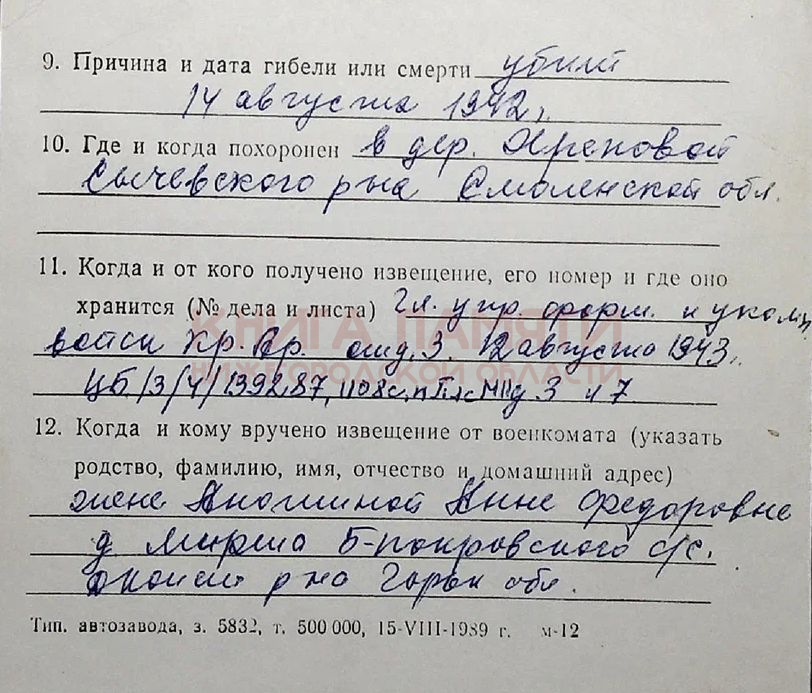 9. Причина и дата гибели или смерти убит
14 августа 1942 г.
10. Где и когда похоронен в дер.
Сычевского р-на Смоленской обл.
11. Когда и от кого получено извещение, его номер и где оно
хранится (№ дела и листа) Гл. упр. форм. и укомп.
войск Кр. Ар. отд. 3. 12 августа 1943 г.
КНИГА ПАМЯТИ
НИЖЕГОРОДСКОЙ ОБЛАСТИ
12. Когда и кому вручено извещение от военкомата (указать
родство, фамилию, имя, отчество и домашний адрес)
жене Аношиной Анне Федоровне
д Мирша Б-покровского с/с.
р-на Горьк обл.
Тип. автозавода, з. 5832, т. 500 000, 15-VIII-1989 г. м-12